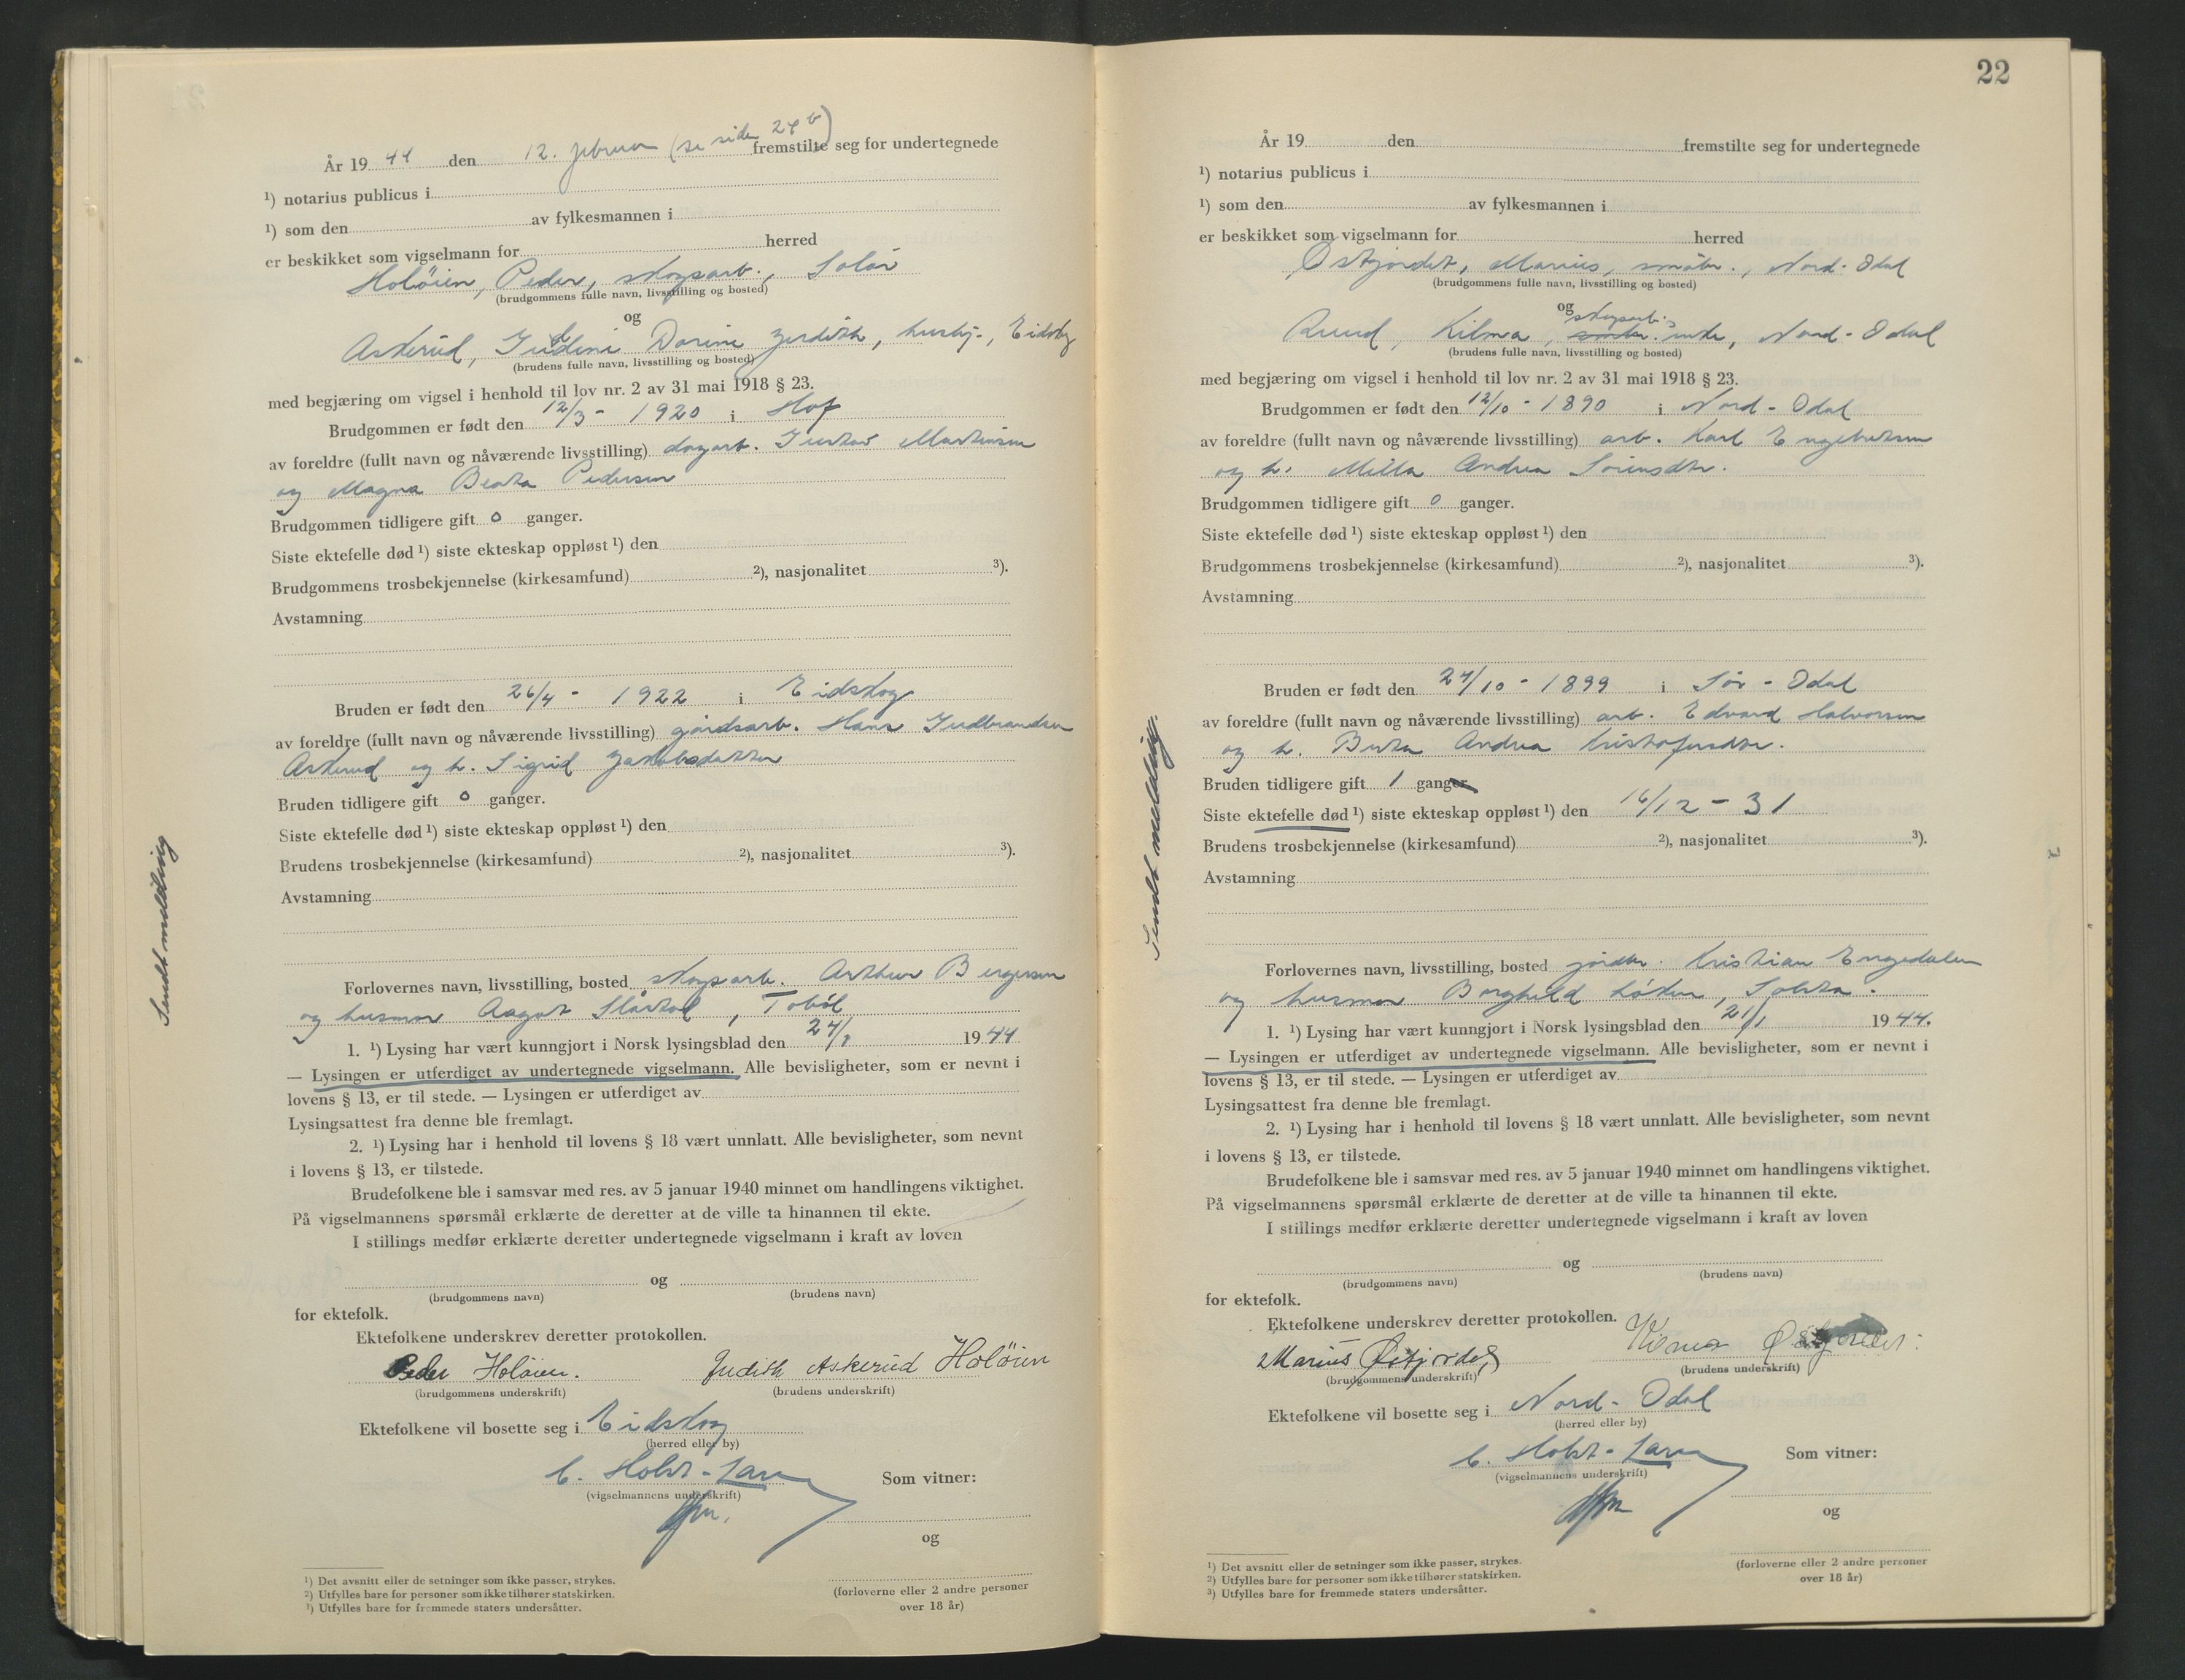 År 19 44 den 12. februar (se side 24 b) fremstilte seg for undertegnede
¹) notarius publicus i
¹) som den av fylkesmannen i
er beskikket som vigselmann for herred
Holöien, Peder, skogsarb., Solör
(brudgommens fulle navn, livsstilling og bosted)
og
Askerud, Dorine Judith, hushj., Eidskog
(brudens fulle navn, livsstilling og bosted)
med begjæring om vigsel i henhold til lov nr. 2 av 31 mai 1918 § 23.
Brudgommen er født den 12/3 - 1920 i Hof
av foreldre (fullt navn og nåværende livsstilling) dagarb. Gustav Martinsen
og Magna Beata Pedersen
Brudgommen tidligere gift 0 ganger.
Siste ektefelle død ¹) siste ekteskap oppløst ¹) den
Brudgommens trosbekjennelse (kirkesamfund) ²), nasjonalitet ³).
Avstamning
Bruden er født den 26/4 - 1922 i Eidskog
av foreldre (fullt navn og nåværende livsstilling) gårdsarb. Hans Gudbrandsen
Askerud og h. Sigrid Jakobsdatter
Bruden tidligere gift 0 ganger.
Siste ektefelle død ¹) siste ekteskap oppløst ¹) den
Brudens trosbekjennelse (kirkesamfund) ²), nasjonalitet ³).
Avstamning
Sendt melding
Forlovernes navn, livsstilling, bosted skogsarb. Arthur Bergersen
og husmor Aagot
1. ¹) Lysing har vært kunngjort i Norsk lysingsblad den 24/1 1944
— Lysingen er utferdiget av undertegnede vigselmann. Alle bevisligheter, som er nevnt i
lovens § 13, er til stede. — Lysingen er utferdiget av
Lysingsattest fra denne ble fremlagt.
2. ¹) Lysing har i henhold til lovens § 18 vært unnlatt. Alle bevisligheter, som nevnt
i lovens § 13, er tilstede.
Brudefolkene ble i samsvar med res. av 5 januar 1940 minnet om handlingens viktighet.
På vigselmannens spørsmål erklærte de deretter at de ville ta hinannen til ekte.
I stillings medfør erklærte deretter undertegnede vigselmann i kraft av loven
og
(brudgommens navn) (brudens navn)
for ektefolk.
Ektefolkene underskrev deretter protokollen.
Peder Holöien. Judith Askerud Holöien
(brudgommens underskrift) (brudens underskrift)
Ektefolkene vil bosette seg i Eidskog
(herred eller by)
C. Holst-Larsen Som vitner:
(vigselmannens underskrift)
og
¹) Det avsnitt eller de setninger som ikke passer, strykes.
²) Utfylles bare for personer som ikke tilhører statskirken.
³) Utfylles bare for fremmede staters undersåtter.
(forloverne eller 2 andre personer
over 18 år)
22
År 19 den fremstilte seg for undertegnede
¹) notarius publicus i
¹) som den av fylkesmannen i
er beskikket som vigselmann for herred
Østjordet, Marius, småbr., Nord-Odal
(brudgommens fulle navn, livsstilling og bosted)
og
skogsarb.s
Ruud, Kilma, småbr. enke, Nord-Odal
(brudens fulle navn, livsstilling og bosted)
med begjæring om vigsel i henhold til lov nr. 2 av 31 mai 1918 § 23.
Brudgommen er født den 12/10 - 1890 i Nord-Odal
av foreldre (fullt navn og nåværende livsstilling) arb. Karl Engebretsen
og h. Milla Andrea Sørensdtr.
Brudgommen tidligere gift 0 ganger.
Siste ektefelle død ¹) siste ekteskap oppløst ¹) den
Brudgommens trosbekjennelse (kirkesamfund) ²), nasjonalitet ³).
Avstamning
Bruden er født den 24/10 - 1899 i Sør-Odal
av foreldre (fullt navn og nåværende livsstilling) arb. Edvard Halvorsen
og h. Berta Andrea Kristofersdtr.
Bruden tidligere gift 1 ganger
Siste ektefelle død ¹) siste ekteskap oppløst ¹) den 16/12 - 31
Brudens trosbekjennelse (kirkesamfund) ²), nasjonalitet ³).
Avstamning
Sendt melding.
Forlovernes navn, livsstilling, bosted jordbr. Kristian Engedalen
og husmor Borghild
1. ¹) Lysing har vært kunngjort i Norsk lysingsblad den 21/1 1944.
— Lysingen er utferdiget av undertegnede vigselmann. Alle bevisligheter, som er nevnt i
lovens § 13, er til stede. — Lysingen er utferdiget av
Lysingsattest fra denne ble fremlagt.
2. ¹) Lysing har i henhold til lovens § 18 vært unnlatt. Alle bevisligheter, som nevnt
i lovens § 13, er tilstede.
Brudefolkene ble i samsvar med res. av 5 januar 1940 minnet om handlingens viktighet.
På vigselmannens spørsmål erklærte de deretter at de ville ta hinannen til ekte.
I stillings medfør erklærte deretter undertegnede vigselmann i kraft av loven
og
(brudgommens navn) (brudens navn)
for ektefolk.
Ektefolkene underskrev deretter protokollen.
Marius Østjordet Kilma Østjordet.
(brudgommens underskrift) (brudens underskrift)
Ektefolkene vil bosette seg i Nord-Odal
(herred eller by)
C. Holst-Larsen Som vitner:
(vigselmannens underskrift)
og
¹) Det avsnitt eller de setninger som ikke passer, strykes.
²) Utfylles bare for personer som ikke tilhører statskirken.
³) Utfylles bare for fremmede staters undersåtter.
(forloverne eller 2 andre personer
over 18 år)